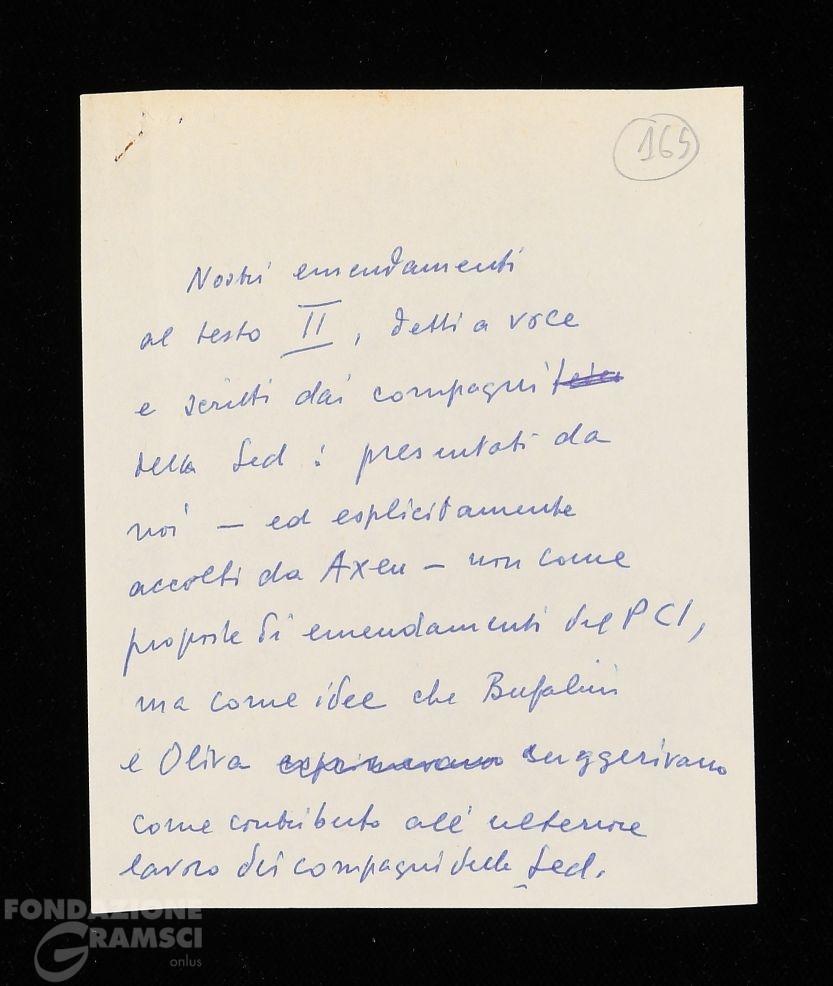 165
Nostri emendamenti
al testo II, detti a voce
e scritti dai compagni
della Sed: presentati da
noi — ed esplicitamente
accolti da Axen — non come
proposte di emendamenti del PCI,
ma come idee che Bufalini
e Oliva esprimevano suggerivano
come contributo all'ulteriore
lavoro dei compagni della Sed.
FONDAZIONE
GRAMSCI
onlus